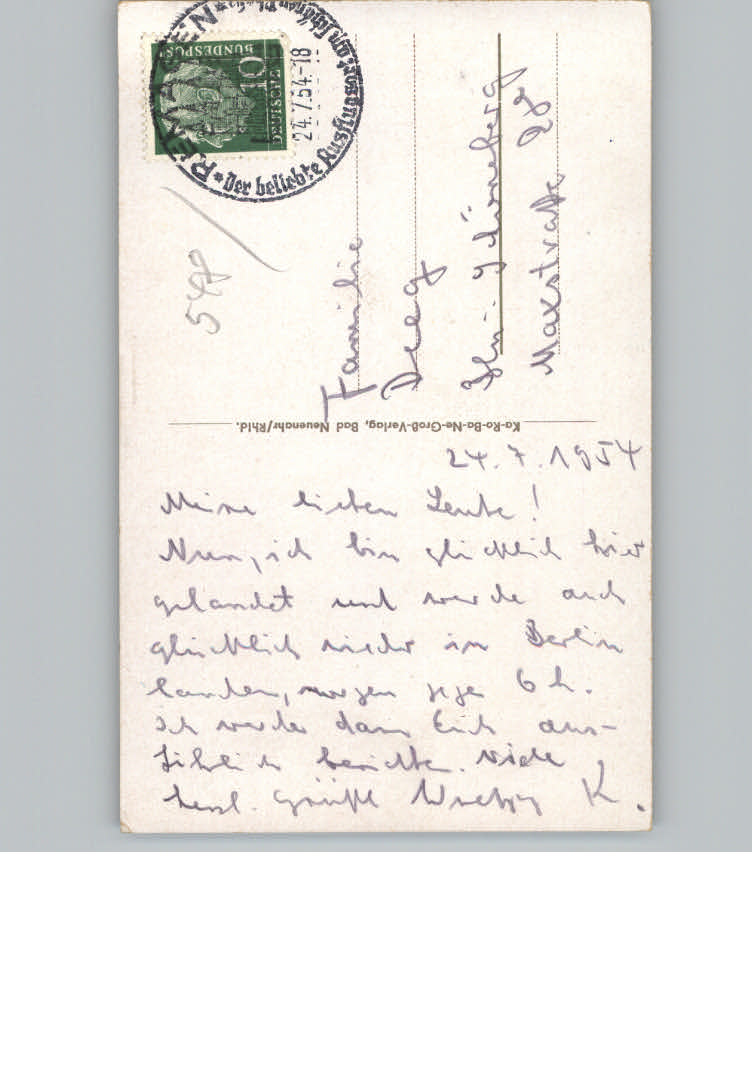 REMAGEN
* Der beliebte Ausflugsort am schönen
24.7.54-18
DEUTSCHE
BUNDESPOST
10
Familie
Deeg
Schöneberg
Maxstraße 28
Ka-Ro-Ba-Ne-Groß-Verlag, Bad Neuenahr/Rhld.
24.7.1954
Meine lieben Leute!
Nun, ich bin glücklich hier
gelandet und werde auch
glücklich wieder in Berlin
landen, morgen gegen 6 h.
Ich werde dann Euch aus-
führlich berichten. Viele
herzl. Grüße K.